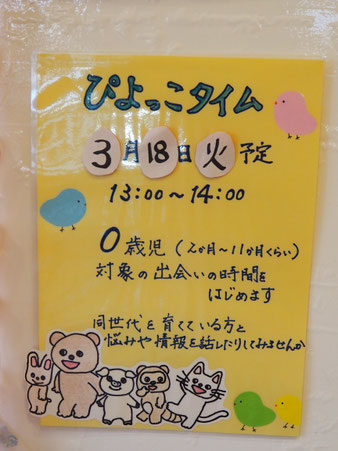 ぴよっこタイム
3月18日火予定
13:00～14:00
0歳児(2か月～11か月くらい)
対象の出会いの時間を
はじめます
同世代を育てている方と
悩みや情報を話したりしてみませんか